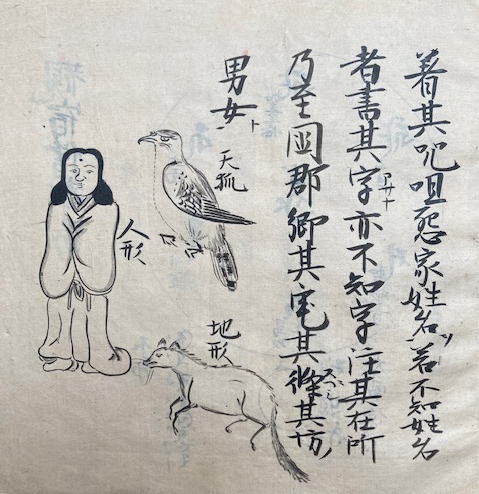 着其呪咀怨家姓名ヲ若不知姓名
者書其字亦不知字注其在所
アサナ
乃至国郡郷其宅其條其坊ノ
男女ト
天狐
人形
地形